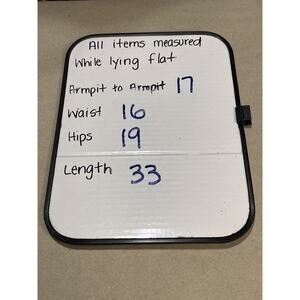 All items measured
While lying flat
Armpit to Armpit 17
Waist 16
Hips 19
Length 33